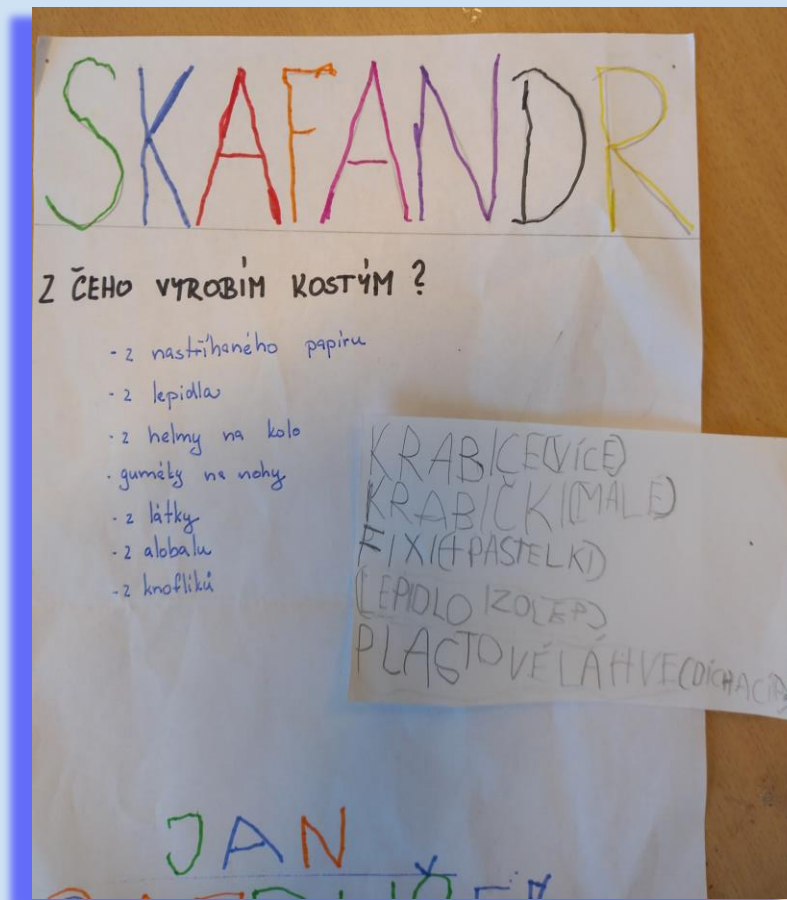 SKAFANDR
Z ČEHO VYROBÍM KOSTÝM ?
- z nastříhaného papíru
- z lepidla
- z helmy na kolo
- guméky na nohy
- z látky
- z alobalu
- z knoflíků
KRABICE(VÍCE)
KRABIČKI(MALÉ)
FIXI(+PASTELKI)
(LEPIDLO IZOLEP)
PLASTOVÉ LÁHVE(DÍCHACÍ)
JAN